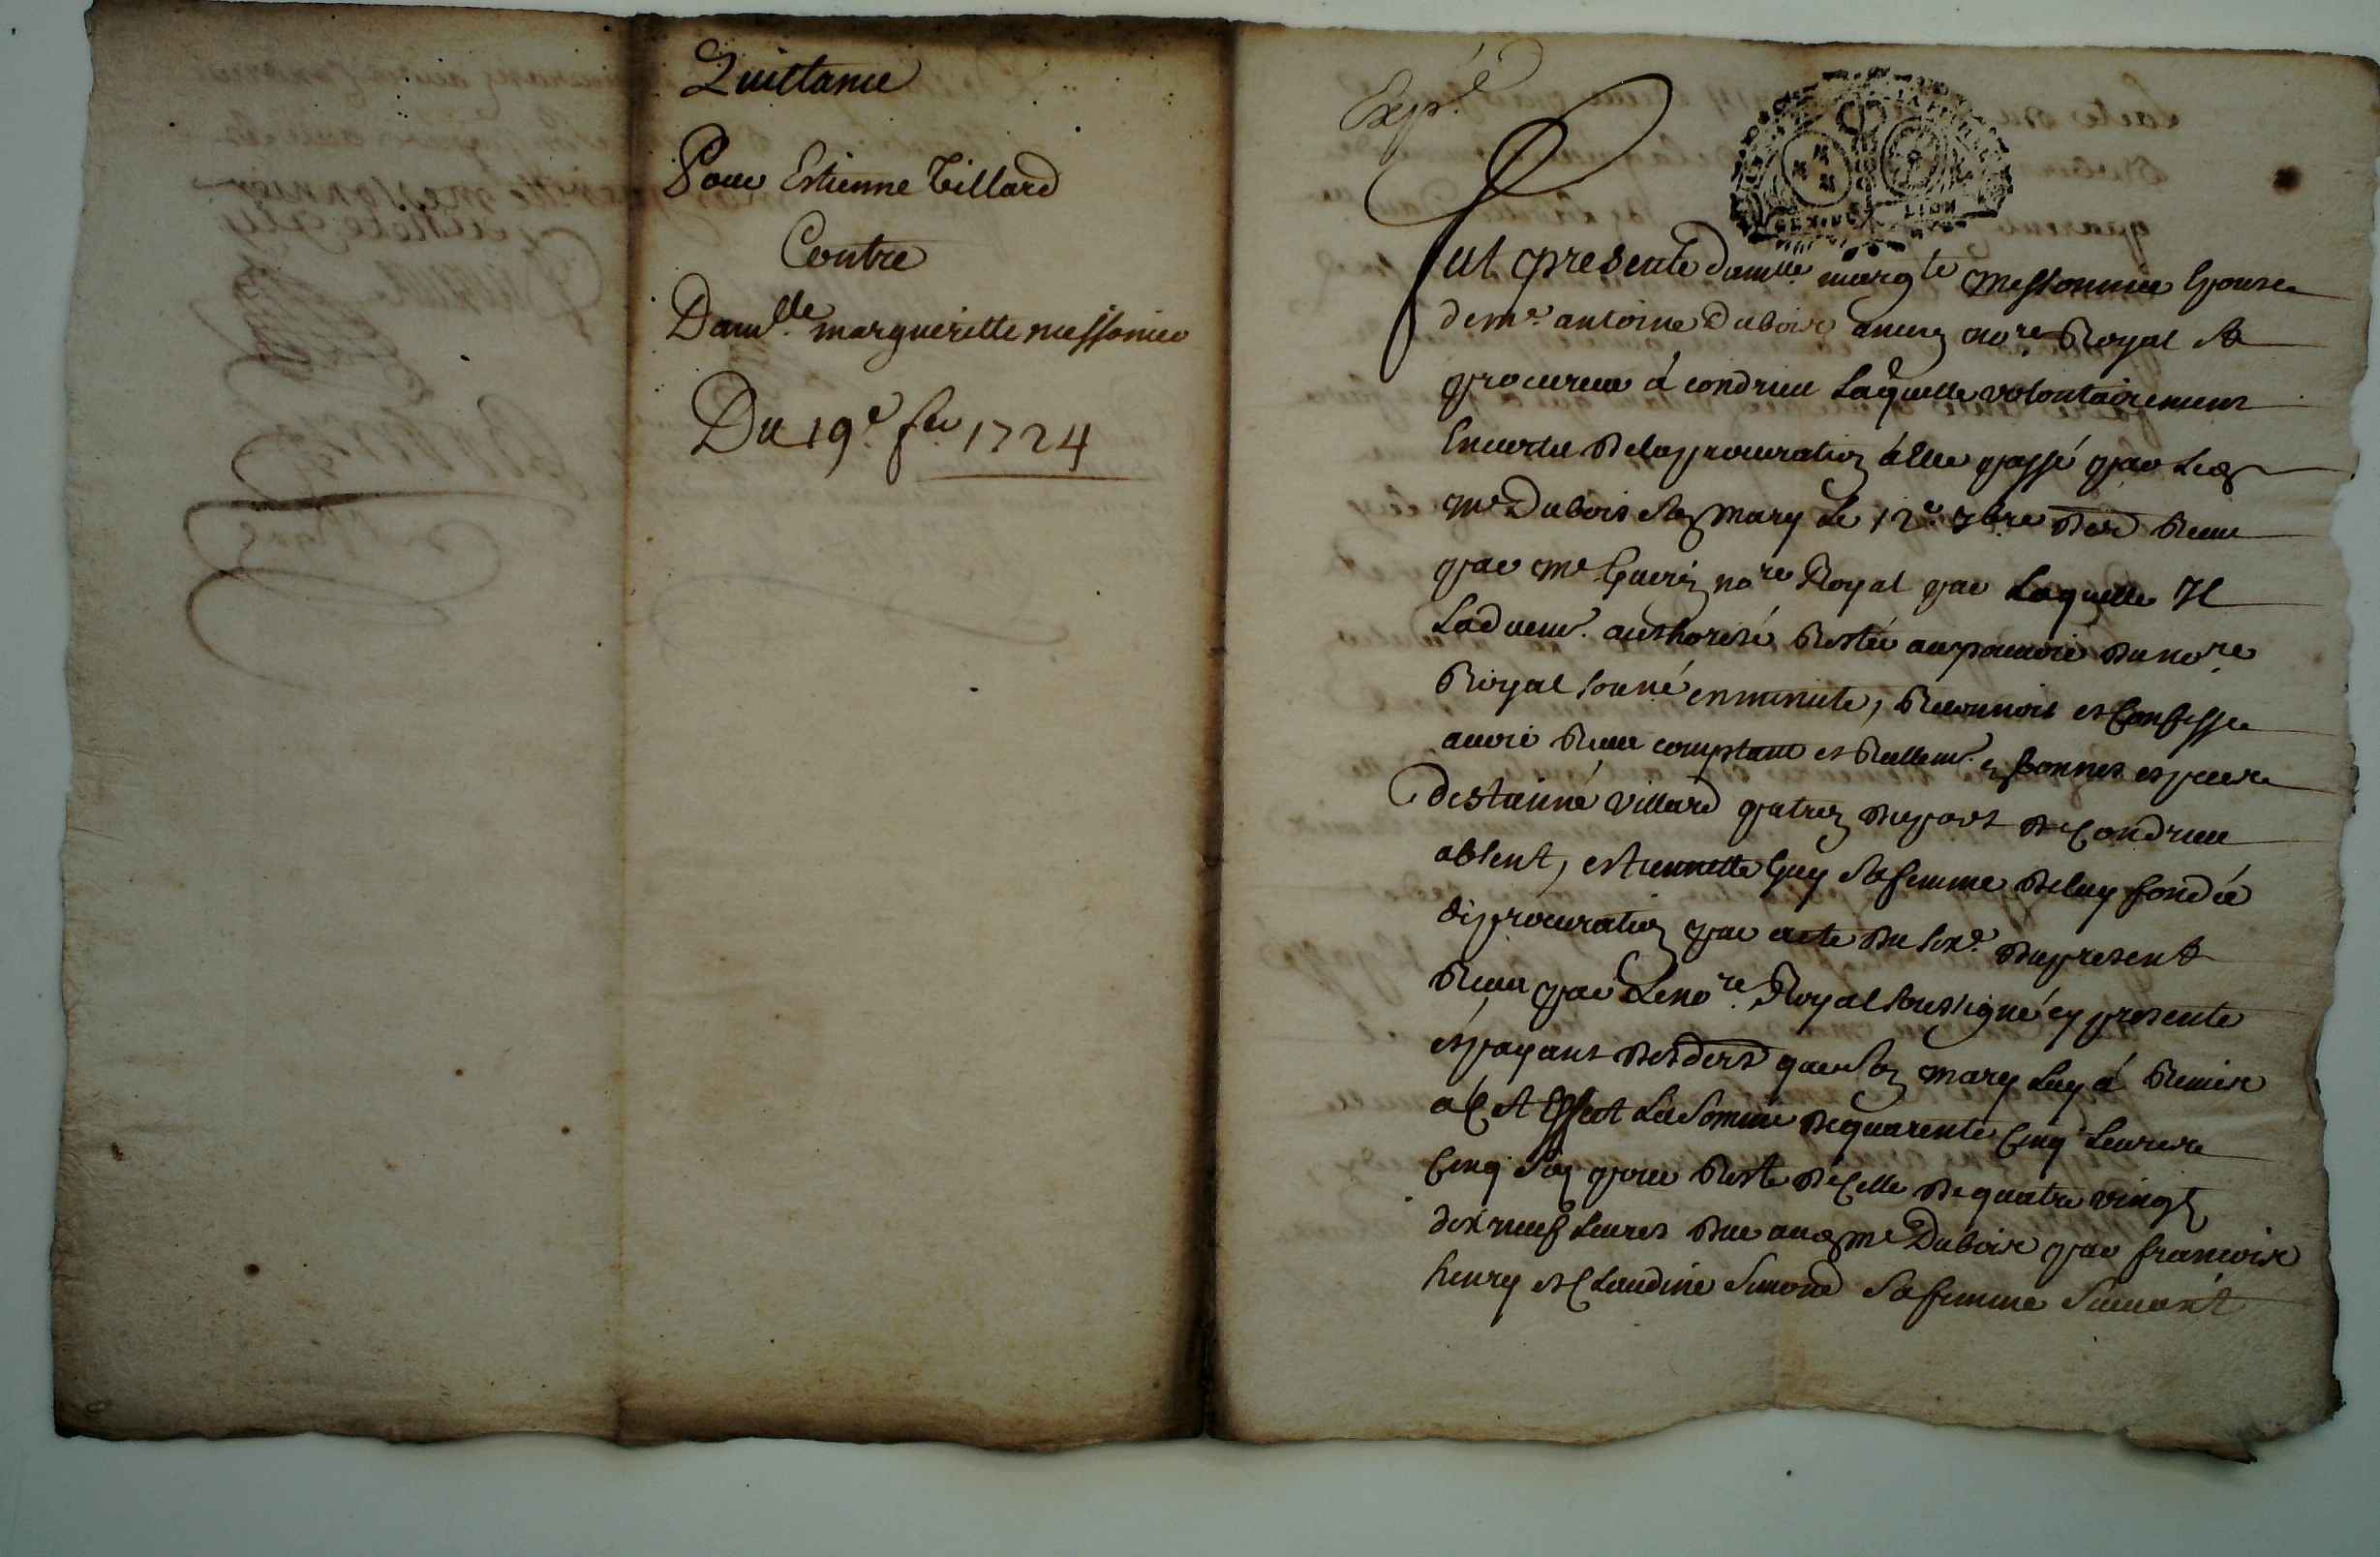 Quittance
Pour Estienne Villard
Contre
Damlle margueritte messonier
Du 19e fer 1724
Expé
Fut presente damlle margte messonnier Epouse
de me antoine Dubois ancien nore Royal &
procureur á condrieu Laquelle volontairement
En vertu de la procuration á Elle passé par Led
me Dubois son mary le 12e 7bre der Receu
par me Guerin nore Royal par Laquelle Il
La duemt authorisé Restée au pouvoir du nore
Royal sousné en minute, Reconnoit et Confesse
avoir Receu comptant et Reellemt en bonnes especes
destienne Villard patron du port de Condrieu
absent, estiennette Guy sa femme de luy fondée
de procuration par acte du six.e du present
Receu par Le nore Royal soussigné cy presente
et payant des deniers que son mary Luy á Remis
a Cet Effect La Somme de quarente Cinq Livres
Cinq sols pour Reste de Celle de quatre vingt
dix neuf Livres due aud me Dubois par francois
henry et Claudine Simond sa femme Suivant